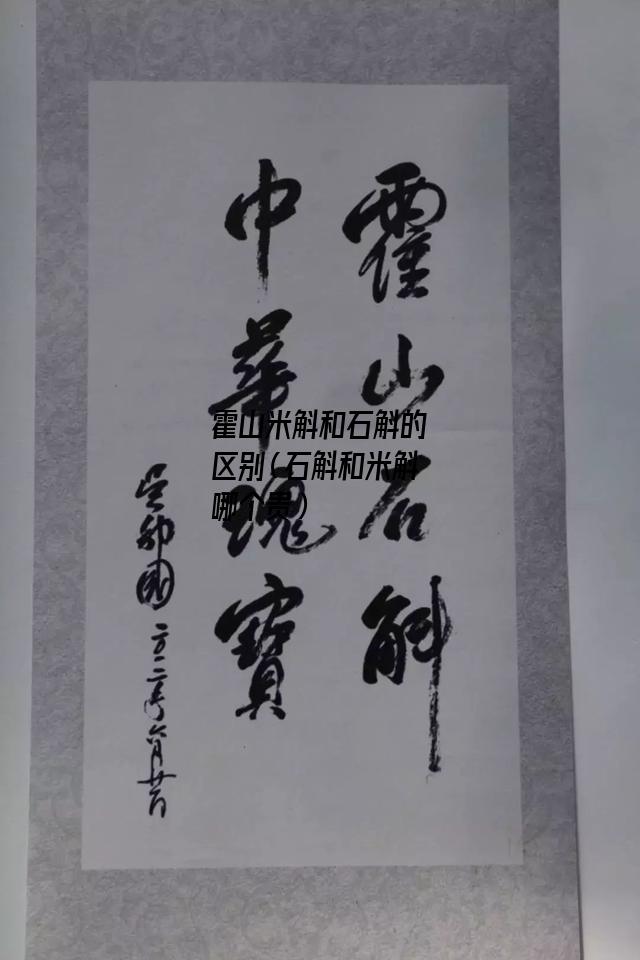 霍山石斛
中華瑰寶
吴邦國 二〇一二年六月廿
霍山米斛和石斛的
区别(石斛和米斛
哪个贵)